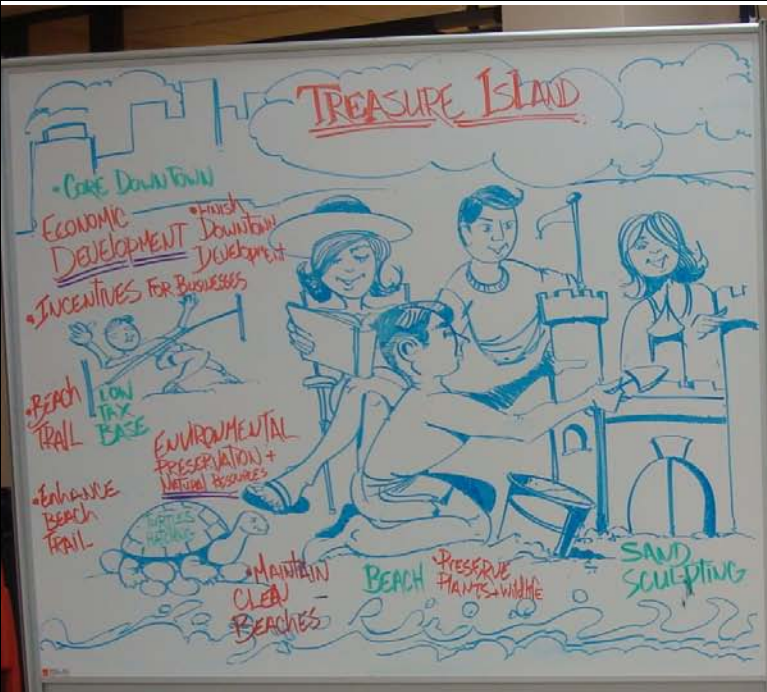 TREASURE ISLAND
• CORE DOWNTOWN
ECONOMIC
DEVELOPMENT
• FINISH
DOWNTOWN
DEVELOPMENT
• INCENTIVES FOR BUSINESSES
• BEACH
TRAIL
LOW
TAX
BASE
ENVIRONMENTAL
PRESERVATION +
NATURAL RESOURCES
• ENHANCE
BEACH
TRAIL
TURTLES
HATCHING
• MAINTAIN
CLEAN
BEACHES
BEACH
• PRESERVE
PLANTS + WildliFE
SAND
SCULPTING